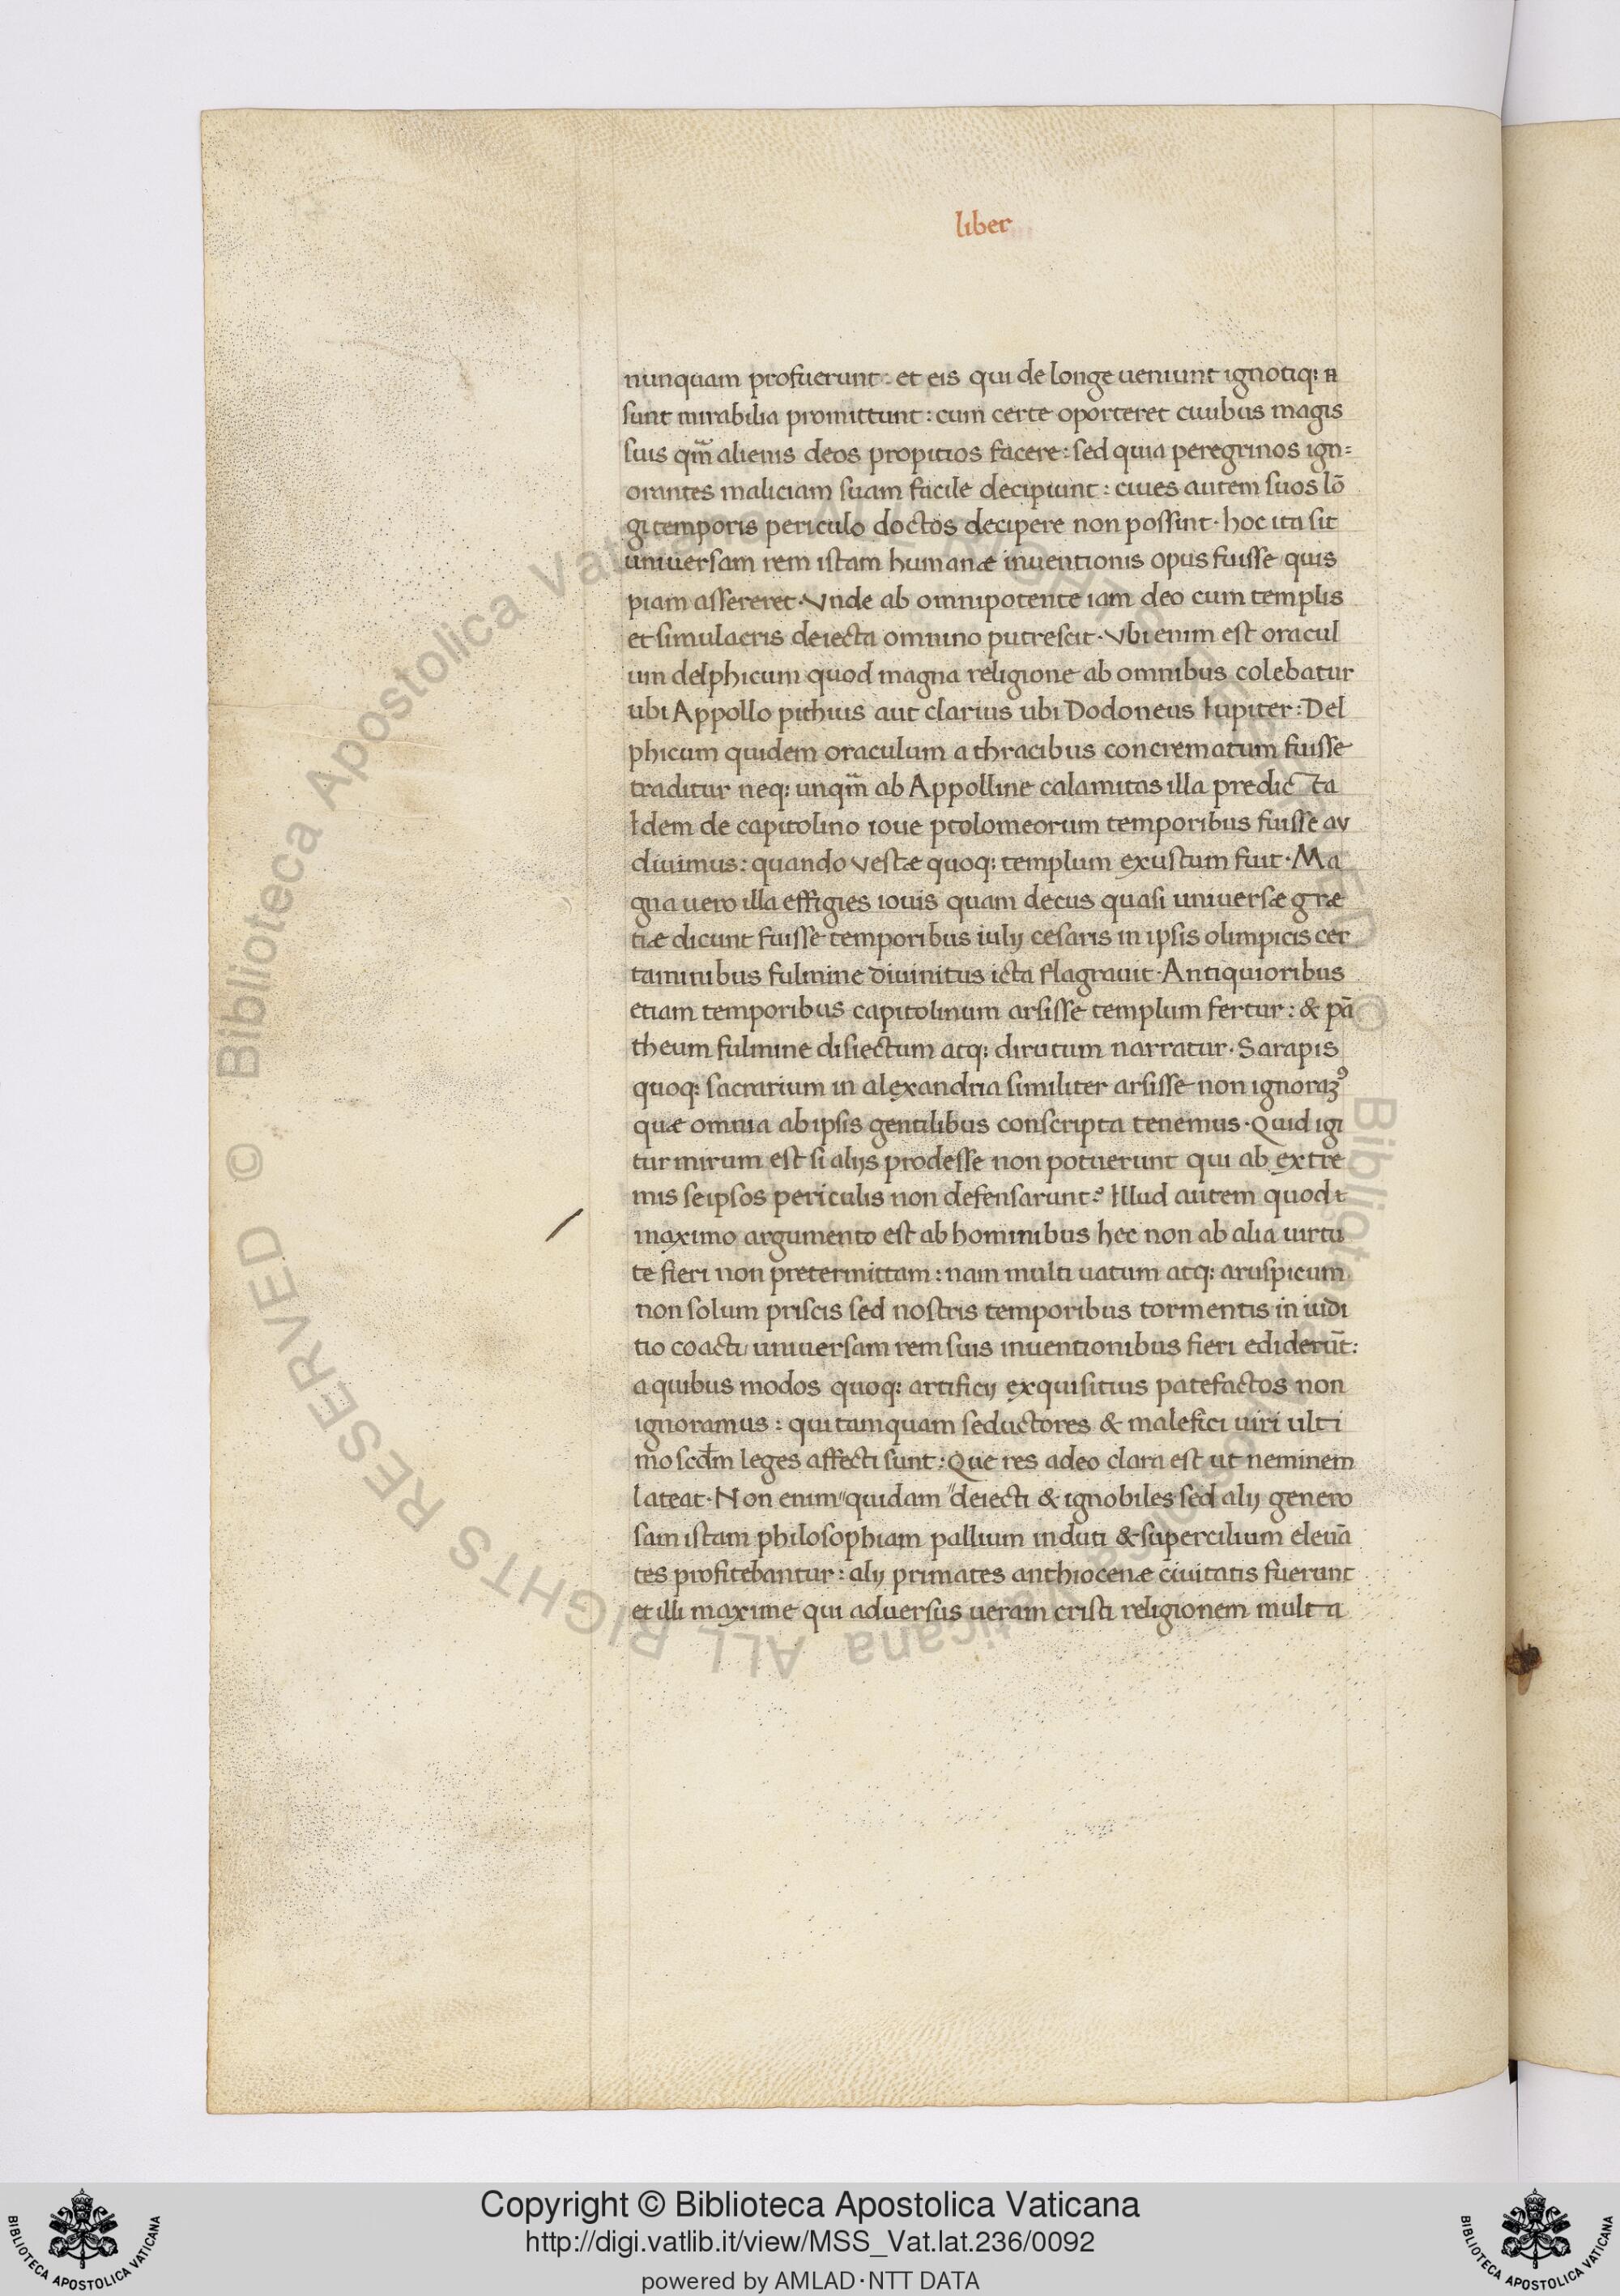 liber
nunquam profuerunt: et eis qui de longe ueniunt ignotiq: n̄
sunt mirabilia promittunt: cum certe oporteret ciuibus magis
suis qm̄ alienis deos propitios facere: sed quia peregrinos ign=
orantes maliciam suam facile decipiunt: ciues autem suos lō
gi temporis periculo doctos decipere non possint· hoc ita sit
universam rem istam humanæ inuentionis opus fuisse quis
piam assereret· Vnde ab omnipotente iam deo cum templis
et simulacris deiecta omnino putrescit· Vbi enim est oracul
um delphicum quod magna religione ab omnibus colebatur
ubi Appollo pithius aut clarius ubi Dodoneus Iupiter: Del
phicum quidem oraculum a thracibus concrematum fuisse
traditur neq: unqm̄ ab Appolline calamitas illa predicta
Idem de capitolino ioue ptolomeorum temporibus fuisse au
diuimus: quando vestæ quoq: templum exustum fuit· Ma
gna uero illa effigies iouis quam decus quasi universæ græ
tiæ dicunt fuisse temporibus iulij cesaris in ipsis olimpicis cer
taminibus fulmine diuinitus icta flagrauit· Antiquioribus
etiam temporibus capitolinum arsisse templum fertur: & pā
theum fulmine disiectum atq: dirutum narratur· Sarapis
quoq: sacrarium in alexandria similiter arsisse non ignoramꝰ
quæ omnia ab ipsis gentilibus conscripta tenemus· Quid igi
tur mirum est si alijs prodesse non potuerunt qui ab extre
mis seipsos periculis non defensarunt? Illud autem quod
maximo argumento est ab hominibus hec non ab alia uirtu
te fieri non pretermittam: nam multi uatum atq: aruspicum
non solum priscis sed nostris temporibus tormentis in iudi
tio coacti universam rem suis inuentionibus fieri ediderūt:
a quibus modos quoq: artificij exquisitius patefactos non
ignoramus: qui tamquam seductores & malefici uiri ulti
mo scdm̄ leges affecti sunt: Que res adeo clara est ut neminem
lateat· Non enim "quidam "deiecti & ignobiles sed alij genero
sam istam philosophiam pallium induti & supercilium eleuā
tes profitebantur: alij primates anthiocenæ ciuitatis fuerunt
et illi maxime qui aduersus ueram cristi religionem multa
© Biblioteca Apostolica Vaticana ALL RIGHTS RESERVED
© Biblioteca Apostolica Vaticana ALL RIGHTS RESERVED
Copyright © Biblioteca Apostolica Vaticana
http://digi.vatlib.it/view/MSS_Vat.lat.236/0092
powered by AMLAD·NTT DATA
BIBLIOTECA APOSTOLICA VATICANA
BIBLIOTECA APOSTOLICA VATICANA